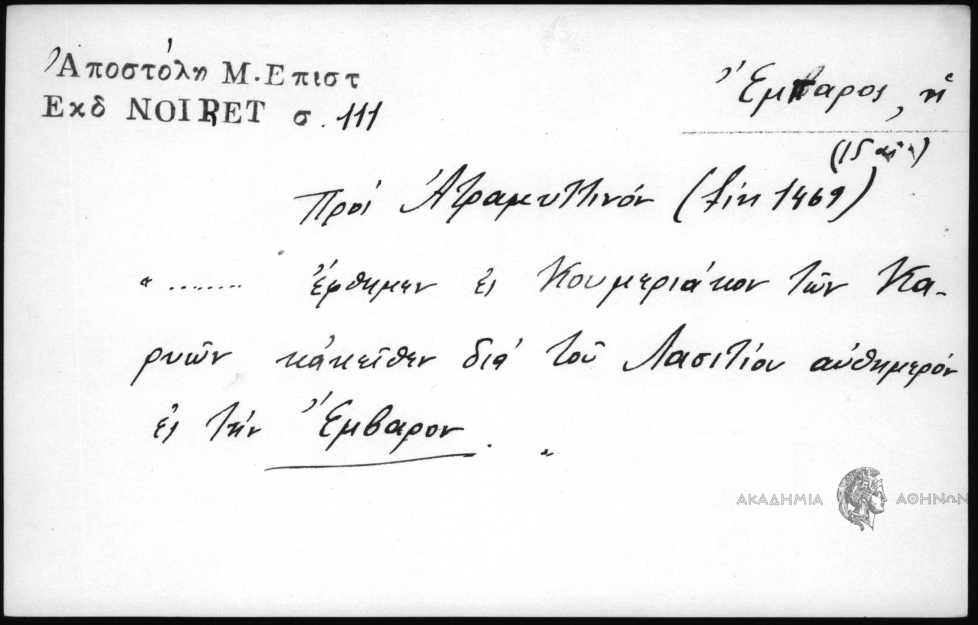 Ἀποστόλη Μ. Επιστ
Εκδ NOIRET σ. 111
Ἔμπαρος, ἡ
(15 αἰ.)
Πρὸς Ἀτραμυττινόν (fin 1469)
"........ ἔφθημεν ἐς Κουμεριάκον τῶν Κα-
ρυῶν κἀκεῖθεν διὰ τοῦ Λασιτίου αὐθημερόν
ἐς τὴν Ἔμβαρον. "
ΑΚΑΔΗΜΙΑ ΑΘΗΝΩΝ